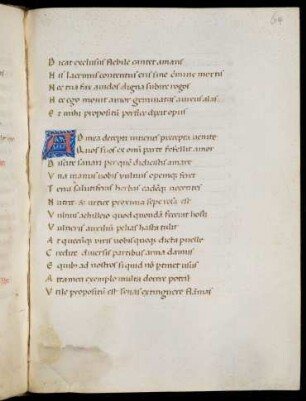 64
D icat exclusus flebile cantet amans
H is lacrimis contentus eris sine crīmine mortis
N ec tua fax auidos digna subire rogos
H ec ego mouit amor geminatas aureus alas
E t mihi propositū perfice dixit opus
A D mea decepti iuuenes precepta uenite
Q uos suus ex omni parte fefellit amor
D iscite sanari per quē didicistis amare
V na manus uobis uulnus opemq; feret
T erra salutiferas herbas eadēq; nocentes
N utrit & urtice proxima sepe rosa est
V ulnus achilleo quod quondā fecerat hosti
V ulneris auxiliū pelias hasta tulit
A t quecūq; uiris uobis quoq; dicta puelle
C redite diuersis partibus arma damus
E quibus ad nostros si quid nō ptinet usus
A ttamen exemplo multa docere potest
V tile propositū est seuas extinguere flāmas